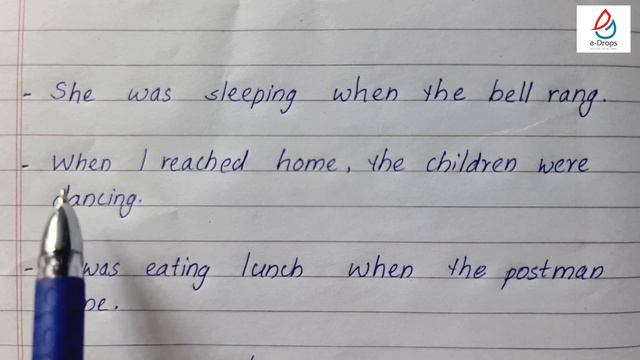 e-Drops
- She was sleeping when the bell rang.
- When I reached home, the children were
dancing.
- was eating lunch when the postman